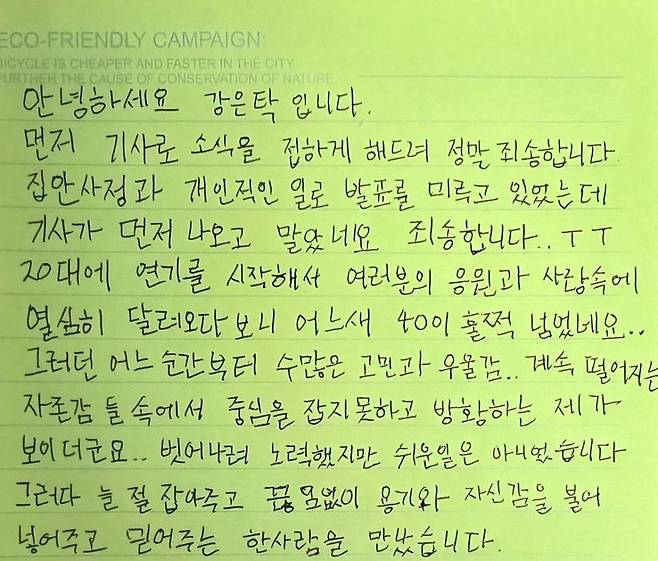 ECO-FRIENDLY CAMPAIGN:
BICYCLE IS CHEAPER AND FASTER IN THE CITY.
FURTHER THE CAUSE OF CONSERVATION OF NATURE.
안녕하세요 강은탁 입니다.
먼저 기사로 소식을 접하게 해드려 정말 죄송합니다.
집안사정과 개인적인 일로 발표를 미루고 있었는데
기사가 먼저 나오고 말았네요 죄송합니다.. ㅜㅜ
20대에 연기를 시작해서 여러분의 응원과 사랑속에
열심히 달려오다보니 어느새 40이 훌쩍 넘었네요..
그러던 어느순간부터 수많은 고민과 우울감.. 계속 떨어지는
자존감 들 속에서 중심을 잡지못하고 방황하는 제가
보이더군요.. 벗어나려 노력했지만 쉬운일은 아니었습니다
그러다 늘 절 잡아주고 끊임없이 용기와 자신감을 불어
넣어주고 믿어주는 한사람을 만났습니다.